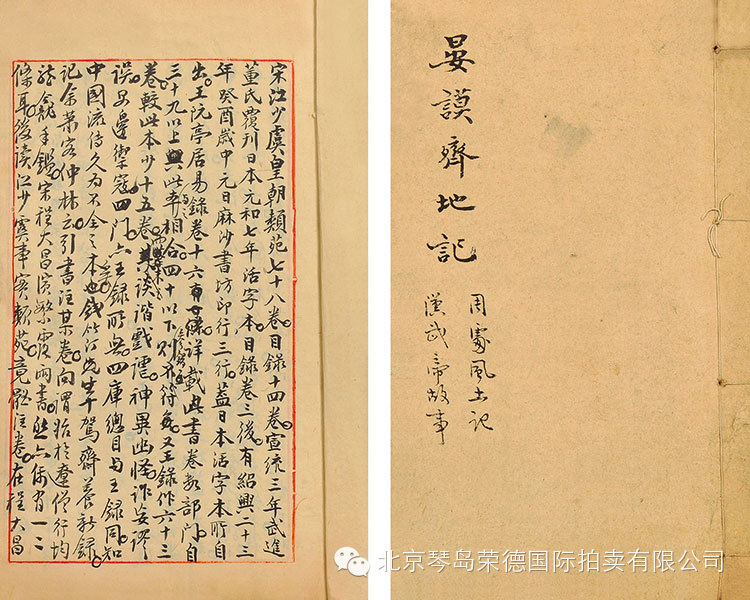 宋江少虞皇朝類苑七十八卷目録十四卷宣統三年武進
董氏覆刊日本元和七年活字本目録卷三後有紹興二十三
年癸酉歲中元日麻沙書坊印行三行蓋日本活字本所自
出王阮亭居易録卷十六有一條詳載此書卷數部門自
三十九以上與此本相合四十以下則不符矣又王録作六十三
卷較此本少十五卷其談諧戲謔神異幽怪詐妄謬
誤安邊禦寇四門六王録所無四庫總目与王録同知
中國流傳久為不全之本也錢竹汀先生十駕齋養新録
記余蕭客仲林云引書注某卷向謂始於遼僧行均
龍龕手鑑宋程大昌演繁露兩書然亦偶有一二
條耳後讀江少虞事實類苑竟體注卷在程大昌
晏謨齊地記
周處風土記
漢武帝故事
北京琴岛荣德国际拍卖有限公司